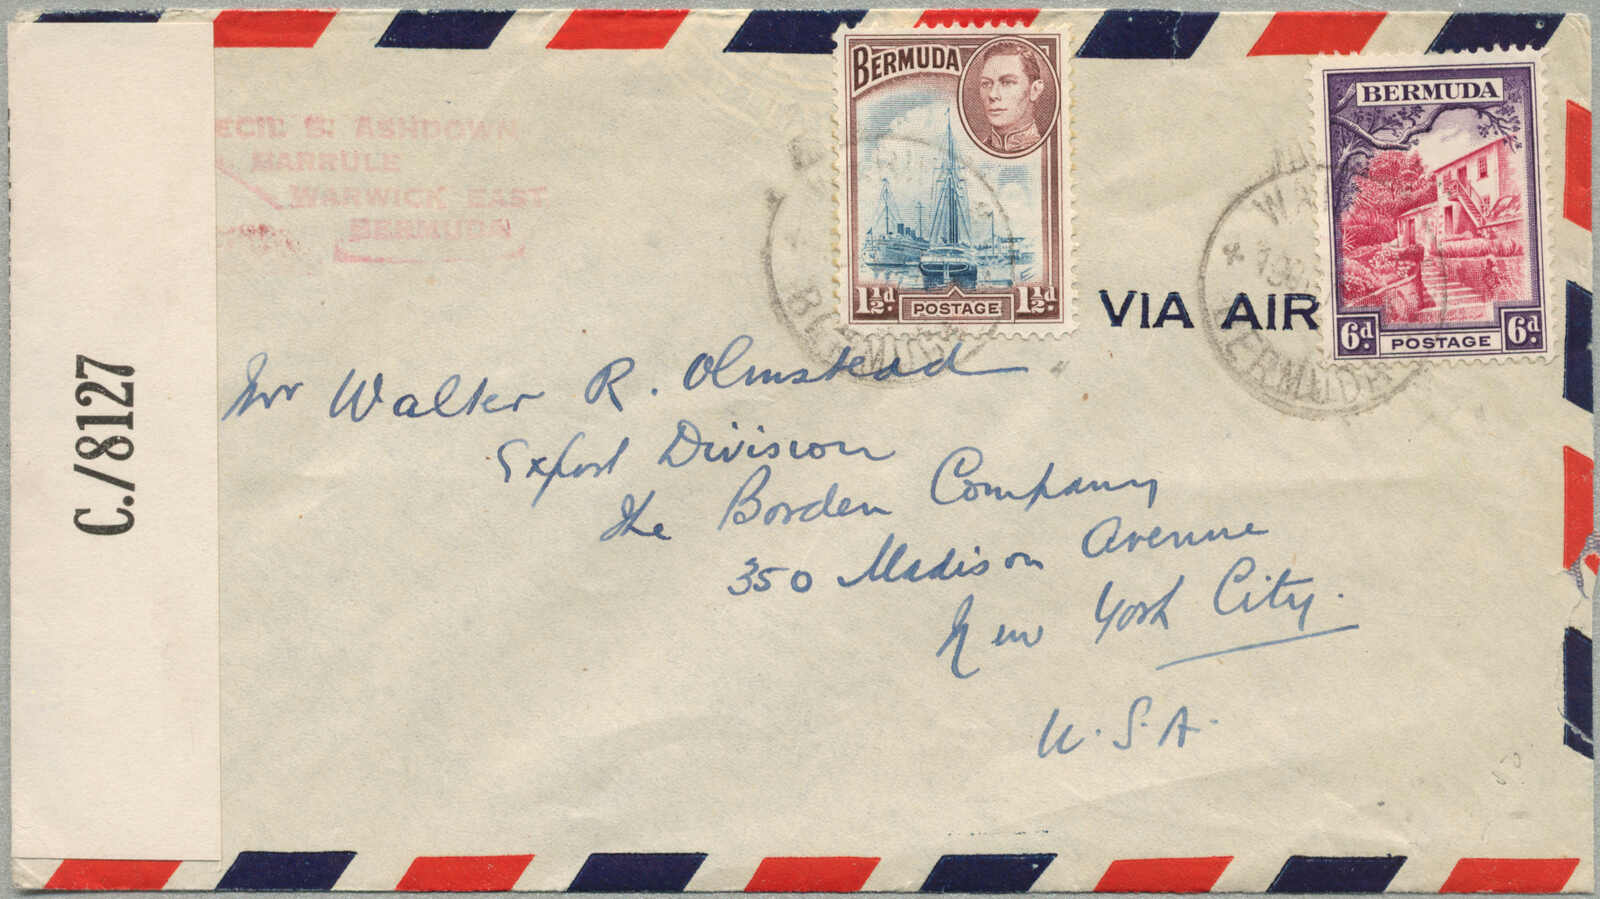 ECIL S. ASHDOWN
HARRULE
WARWICK EAST
BERMUDA
BERMUDA
1½d.
POSTAGE
1½d.
BERMUDA
6d.
POSTAGE
6d.
BERMUDA
BERMUDA
VIA AIR
C./8127
Mr Walter R. Olmstead
Export Division
The Borden Company
350 Madison Avenue
New York City.
U.S.A.